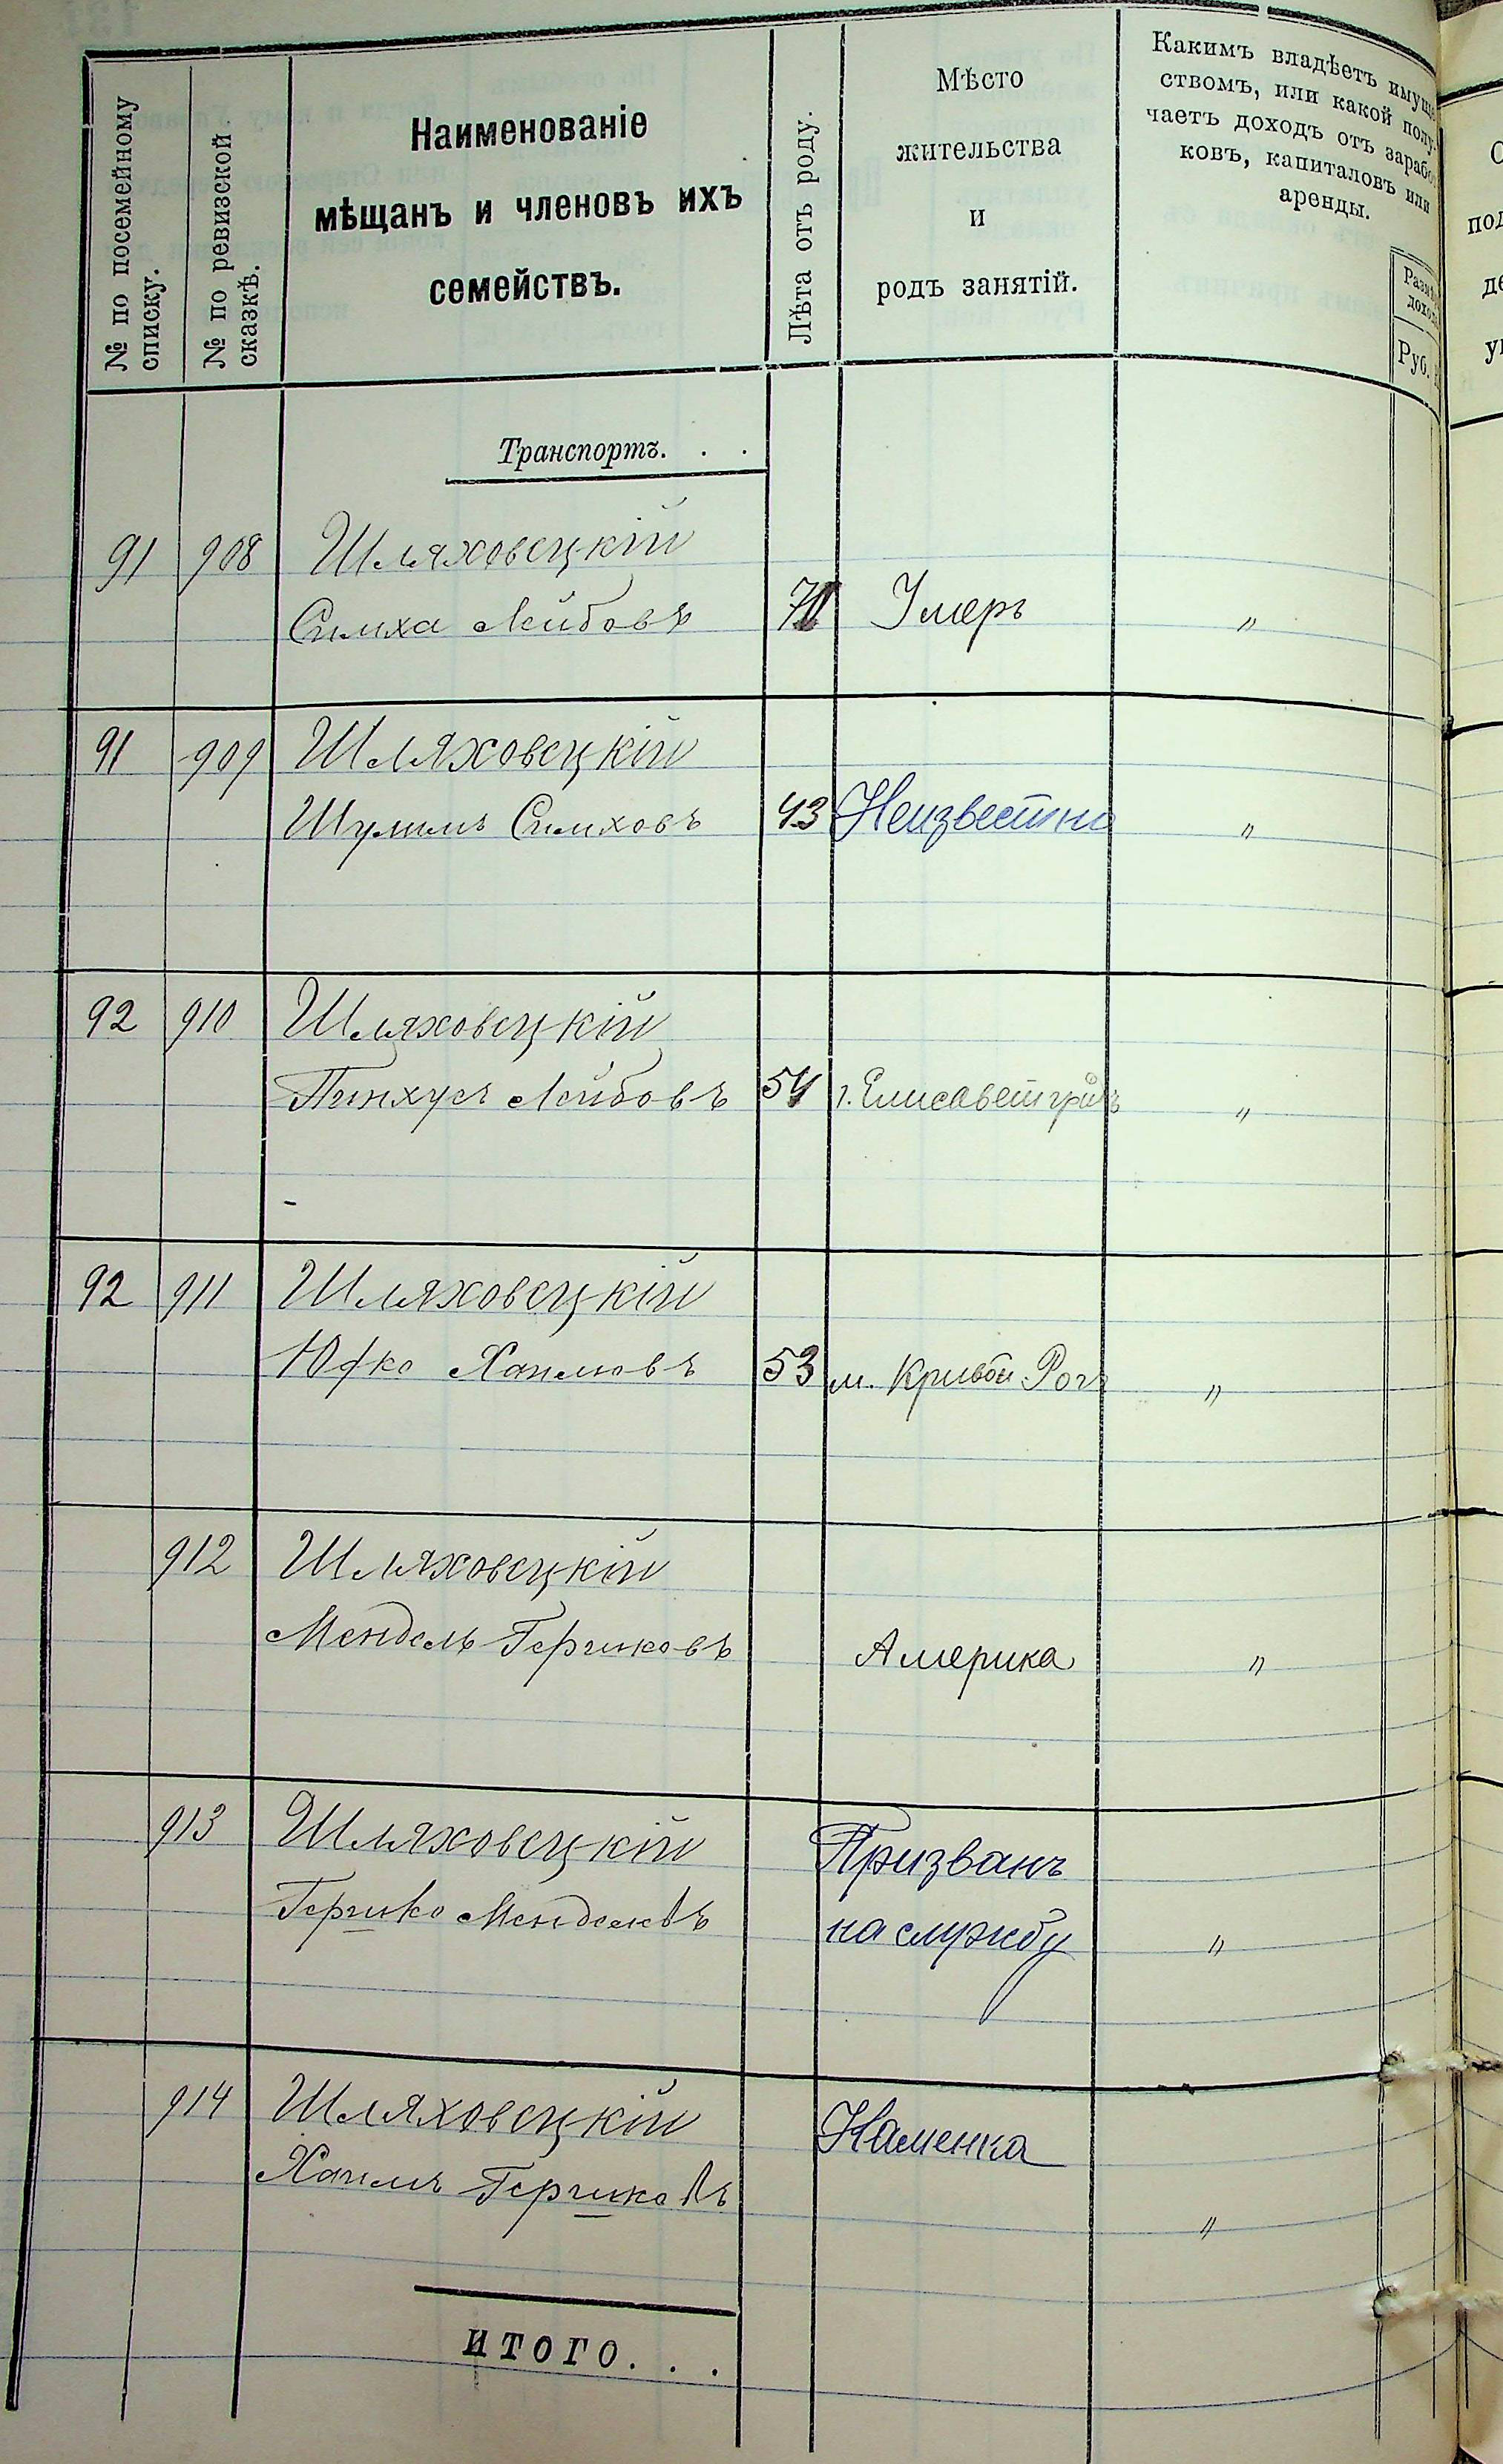 № по посемейному
списку.
№ по ревизской
сказкѣ.
Наименованіе
мѣщанъ и членовъ ихъ
семействъ.
Лѣта отъ роду.
Мѣсто
жительства
и
родъ занятій.
Какимъ владѣетъ имуще
ствомъ, или какой полу-
чаетъ доходъ отъ зарабо
ковъ, капиталовъ или
аренды.
Руб.
Транспортъ. . .
91 908 Шляховецкій
Симха Лейбовъ Умеръ "
91 909 Шляховецкій
Шулимъ Симховъ 43 Неизвестно "
92 910 Шляховецкій
Пинхусъ Лейбовъ 54 г. Елисаветгрдъ "
92 911 Шляховецкій
Юфко Хаимовъ 53 м. Кривой Рогъ "
912 Шляховецкій
Мендель Гершковъ Америка "
913 Шляховецкій Призванъ
Гершко Менделевъ на службу "
914 Шляховецкій Каменка
Хаимъ Гершковъ "
ИТОГО. . .